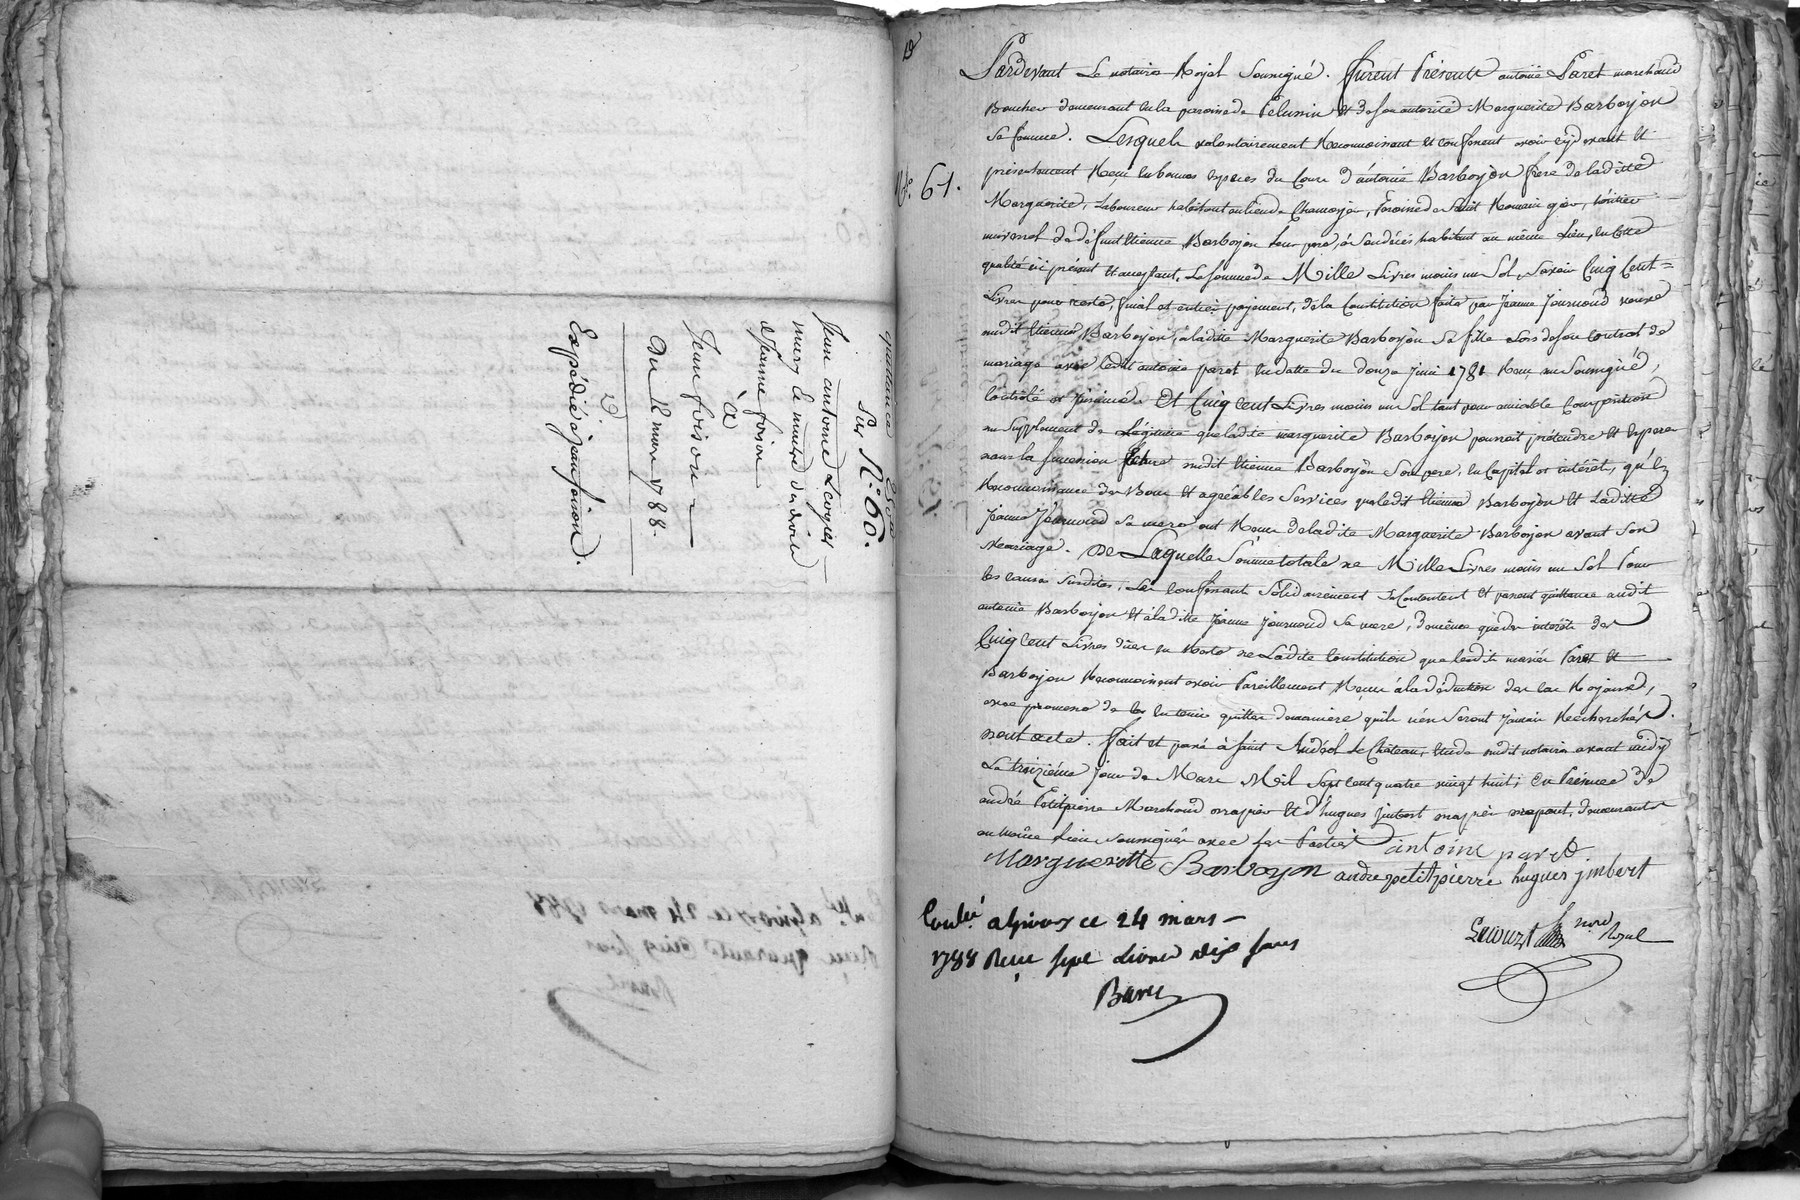 quittance
Sur N.° 60.
Jean antoine
mary
et jeanne foison
à
Jean foison
Du 12 mars 1788.
Expédié à jean foison.
N.° 61.
Pardevant Le notaire Royal Soussigné. furent Présents antoine Paret marchand
Boucher demeurant en la paroisse de Pelussin et de son autorité Marguerite Barboyon
Sa femme. Lesquels volontairement Reconnoissent et confessent avoir cydevant et
présentement Reçu en bonnes espèces du Cours d'antoine Barboyon frere de ladite
Marguerite, Laboureur habitant au lieu de Paroisse de Saint Romain en gier, héritier
universel de défunt Etienne Barboyon leur pere, à son décès habitant au même Lieu, en cette
qualité ici présent et acceptant, La somme de Mille Livres moins un Sol, Savoir Cinq Cent=
Livres pour reste, final et entier payement, de la Constitution faite par Jeanne Journoud veuve
audit Etienne Barboyon, à ladite Marguerite Barboyon Sa fille Lors de son Contrat de
mariage avec ledit antoine paret en datte du douze juin 1781 Reçu, par Soussigné,
Contrôlé et Insinué. Et Cinq Cent Livres moins un Sol tant pour amiable Composition
au Supplément de Légitime que ladite marguerite Barboyon pourroit prétendre et Espérer
dans la Succession dudit Etienne Barboyon Son pere, en Capital et intérêt, qu'en
Reconnoissance des Bons et agréables Services que ledit Etienne Barboyon et Ladite
Jeanne Journoud Sa mere ont Reçu de ladite Marguerite Barboyon avant Son
Mariage. De Laquelle Somme totale de Mille Livres moins un Sol Pour
les causes Susdites, Les Confessants Solidairement Se Contentent et passent quittance audit
antoine Barboyon et à ladite Jeanne journoud Sa mere, de même que des intérêts des
Cinq Cent Livres dûes en Reste de Ladite Constitution que lesdits mariés Paret et
Barboyon Reconnoissent avoir Pareillement Reçu à la déduction des cas Royaux,
avec promesse de les en tenir quittes de maniere qu'ils n'en Seront Jamais Recherchés.
Dont acte. fait et passé à Saint Andéol le Château, étude dudit notaire avant midy
Le treizième jour de Mars Mil Sept Cent quatre vingt huit; En Présence de
andré Petitpierre Marchand drapier Et d'hugues jmbert demeurants
au même Lieu Soussignés avec les Parties antoine paret
Marguerette Barboyon andre petitpierre hugues jmbert
Not.re Royal
Contrlé. a Givors ce 24 mars –
1788 Reçu sept Livres dix sous